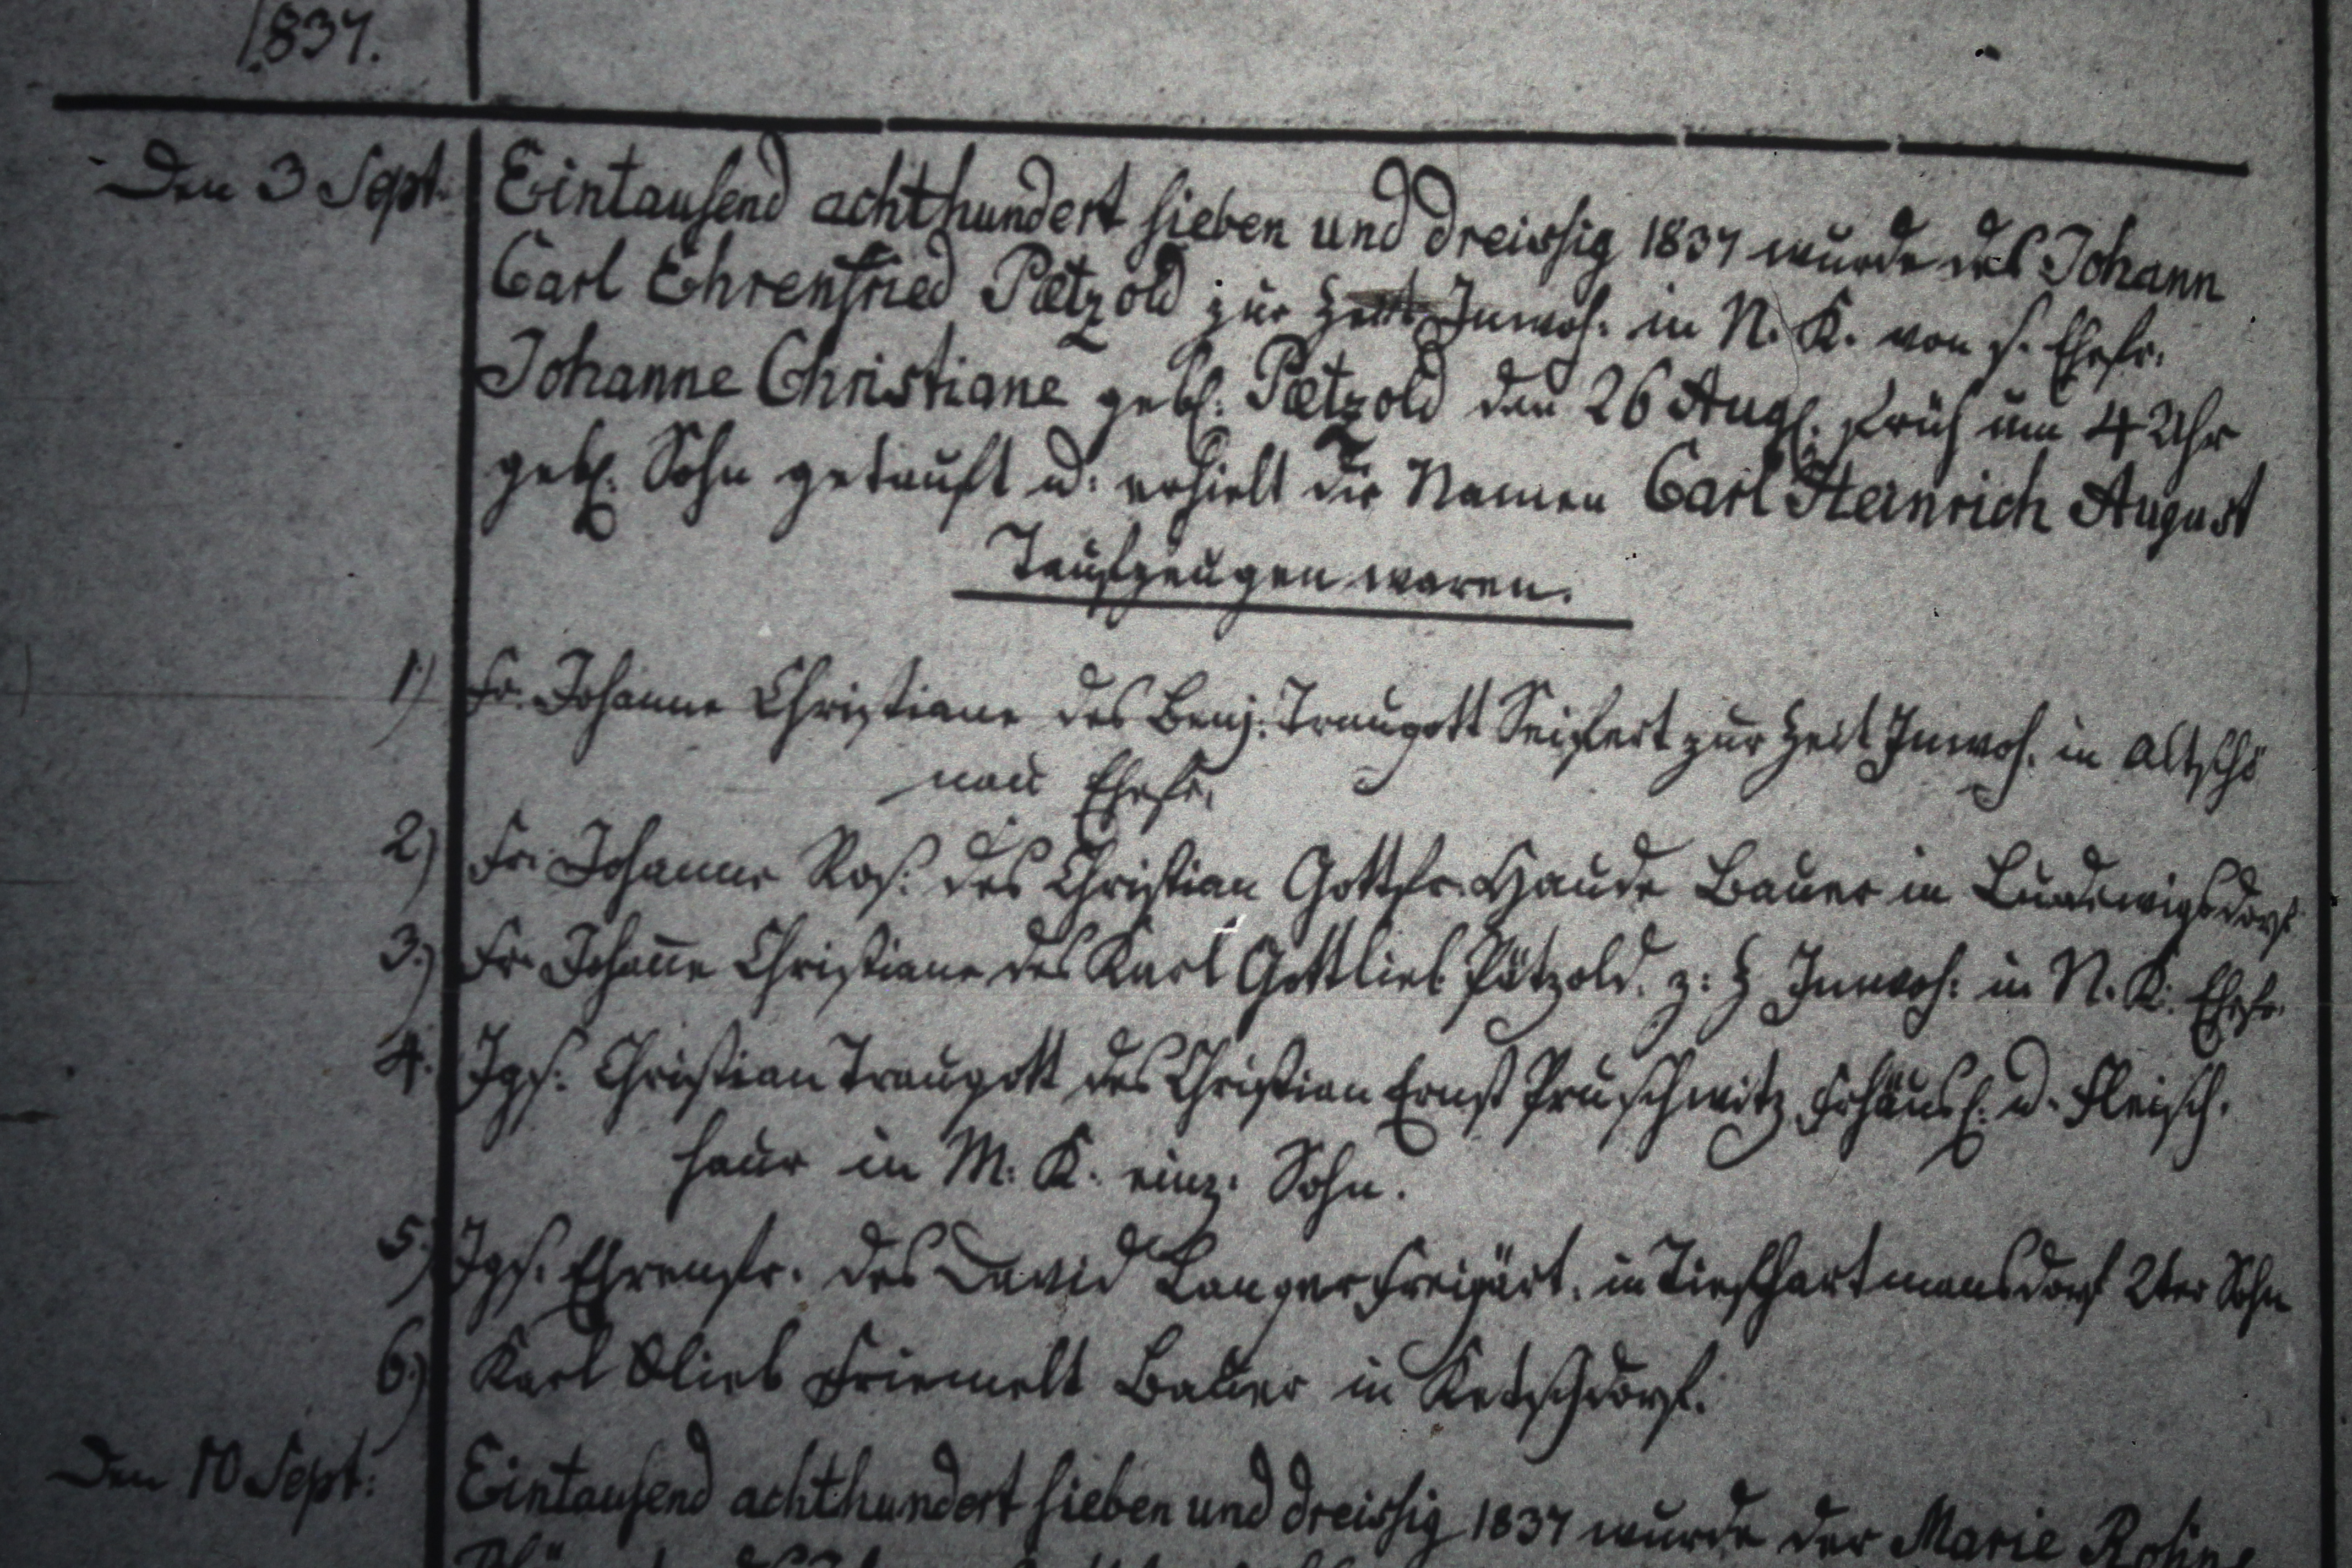 1837.
Den 3 Sept. Eintausend achthundert sieben und dreissig 1837 wurde des Johann
Carl Ehrenfried Pætzold zur Zeit Inwoh. in N. K. von s. Ehefr.
Johanne Christiane gebl. Pætzold den 26 Augl. früh um 4 Uhr
gebl. Sohn getauft u. erhielt die Namen Carl Heinrich August
Taufzeugen waren.
1) Fr. Johanne Christiane des Benj. Traugott Seifert zur Zeit Inwoh. in Altschö
nau Ehefr.
2) Fr. Johanne Ros. des Christian Gottfr. Haude Bauer in Ludewigsdorf
3.) Fr. Joha&#110;̄e Christiane des Karl Gottlieb Pätzold. z: Z Inwoh: in N. K. Ehefr.
4. Jgs. Christian Traugott des Christian Ernst Pruschwitz Frhäusl. u. Fleisch.
haur in M. K. einz. Sohn.
5.) Jgs. Ehrenfr. des David Langer Freigärt. in Tiefhartmansdorf 2ter Sohn
6.) Karl Glieb Friemelt Bauer in Ketschdorf.
Den 10 Sept: Eintausend achthundert sieben und dreissig 1837 wurde der Marie Rosine